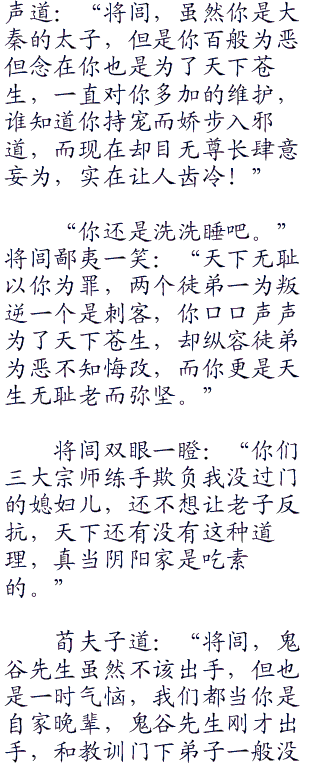 声道：“将闾，虽然你是大
秦的太子，但是你百般为恶
但念在你也是为了天下苍
生，一直对你多加的维护，
谁知道你持宠而娇步入邪
道，而现在却目无尊长肆意
妄为，实在让人齿冷！”
“你还是洗洗睡吧。”
将闾鄙夷一笑：“天下无耻
以你为罪，两个徒弟一为叛
逆一个是刺客，你口口声声
为了天下苍生，却纵容徒弟
为恶不知悔改，而你更是天
生无耻老而弥坚。”
将闾双眼一瞪：“你们
三大宗师练手欺负我没过门
的媳妇儿，还不想让老子反
抗，天下还有没有这种道
理，真当阴阳家是吃素
的。”
荀夫子道：“将闾，鬼
谷先生虽然不该出手，但也
是一时气恼，我们都当你是
自家晚辈，鬼谷先生刚才出
手，和教训门下弟子一般没